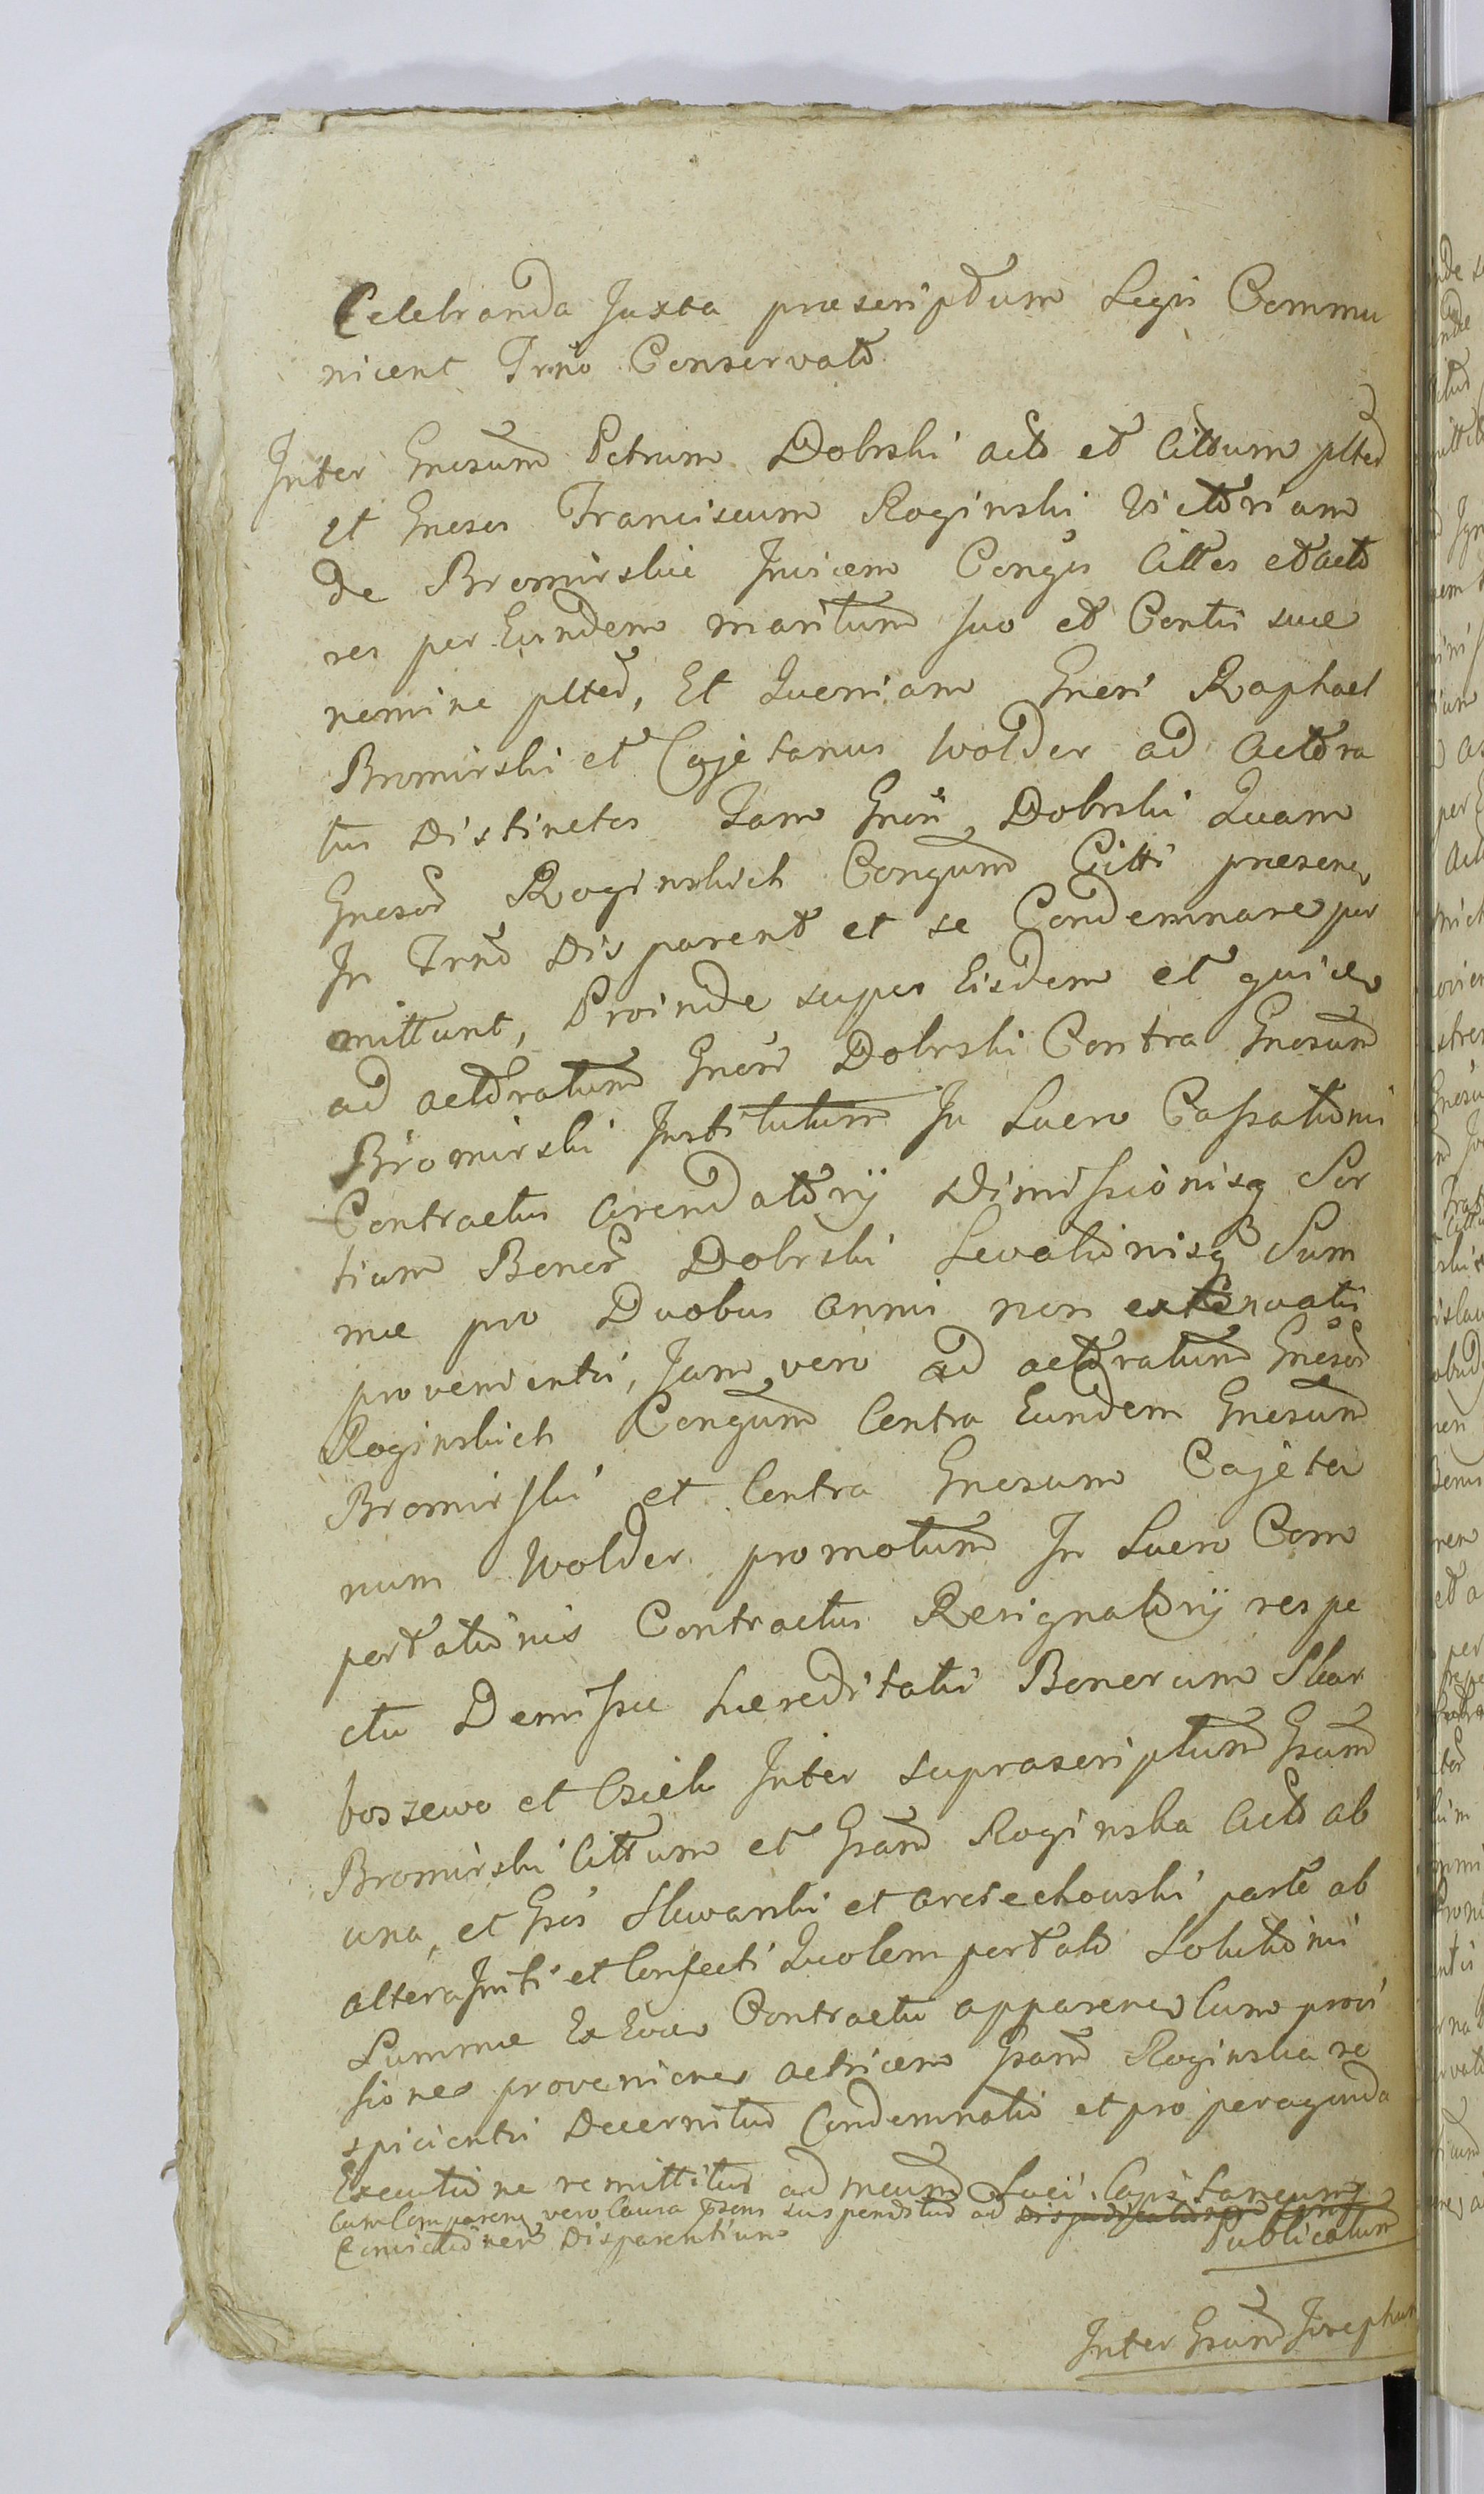 Celebranda Juxta praescriptum Legis Commu
nicent Trno Conservato
Inter Gnosum Petrum Dobrski acto et Cittum plted
et Gnosos Franciscum Roginski Victoriam
de Bromirskie Invicem Conges Cittes et acto
res per Eundem maritum suo et Contis suae
nomine plted, Et Quoniam Gnosi Raphael
Bromirski et Cajetanus Wolder ad actora
tus Distinctos Tam Gnosi Dobrski Quam
Gnosor Roginskich Congum Citti praesenr
In Trno Disparent et se Condemnare per
mittunt, Proinde super Eisdem et quidem
ad actoratum Gnosi Dobrski Contra Gnosum
Bromirski Institutum In Lucro Cassationis
Contractus Arendatorij Dimissionisq Sor
tium Bonor Dobrski Levationisq Sum
mae pro Duobus annis non extenuatis
provenientis, Jam vero ad actoratum Gnosor
Roginskich Congum Contra Eundem Gnosum
Bromirski et Contra Gnosum Cajeta
num Wolder promotum In Lucro Com
portationis Contractus Resignatorij respe
ctu Demissae haereditatis Bonorum Skar
boszewo et Osiek Inter suprascriptum Gsum
Bromirski Cittum et Gsam Roginska Acto ab
una, et Gsos Skwarski et Orzechowski parte ab
altera Initi et Confecti Qualem portato Solutionis
Summae Ex Eoder Contractu apparener Cum provi
sioner provenienes actricem Gsam Roginska re
spicientis Decernitur Condemnatio et pro peragenda
Executione remittitur ad meum Loci. Capitaneum
Cum Comparene vero Causa psens suspenditur ad
Convictioner Disparentium
Publicatum
Inter Gsum Josephum